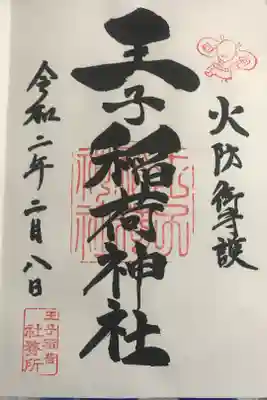 火防御守護
王子稲荷神社
令和二年二月八日
王子稲荷
社務所